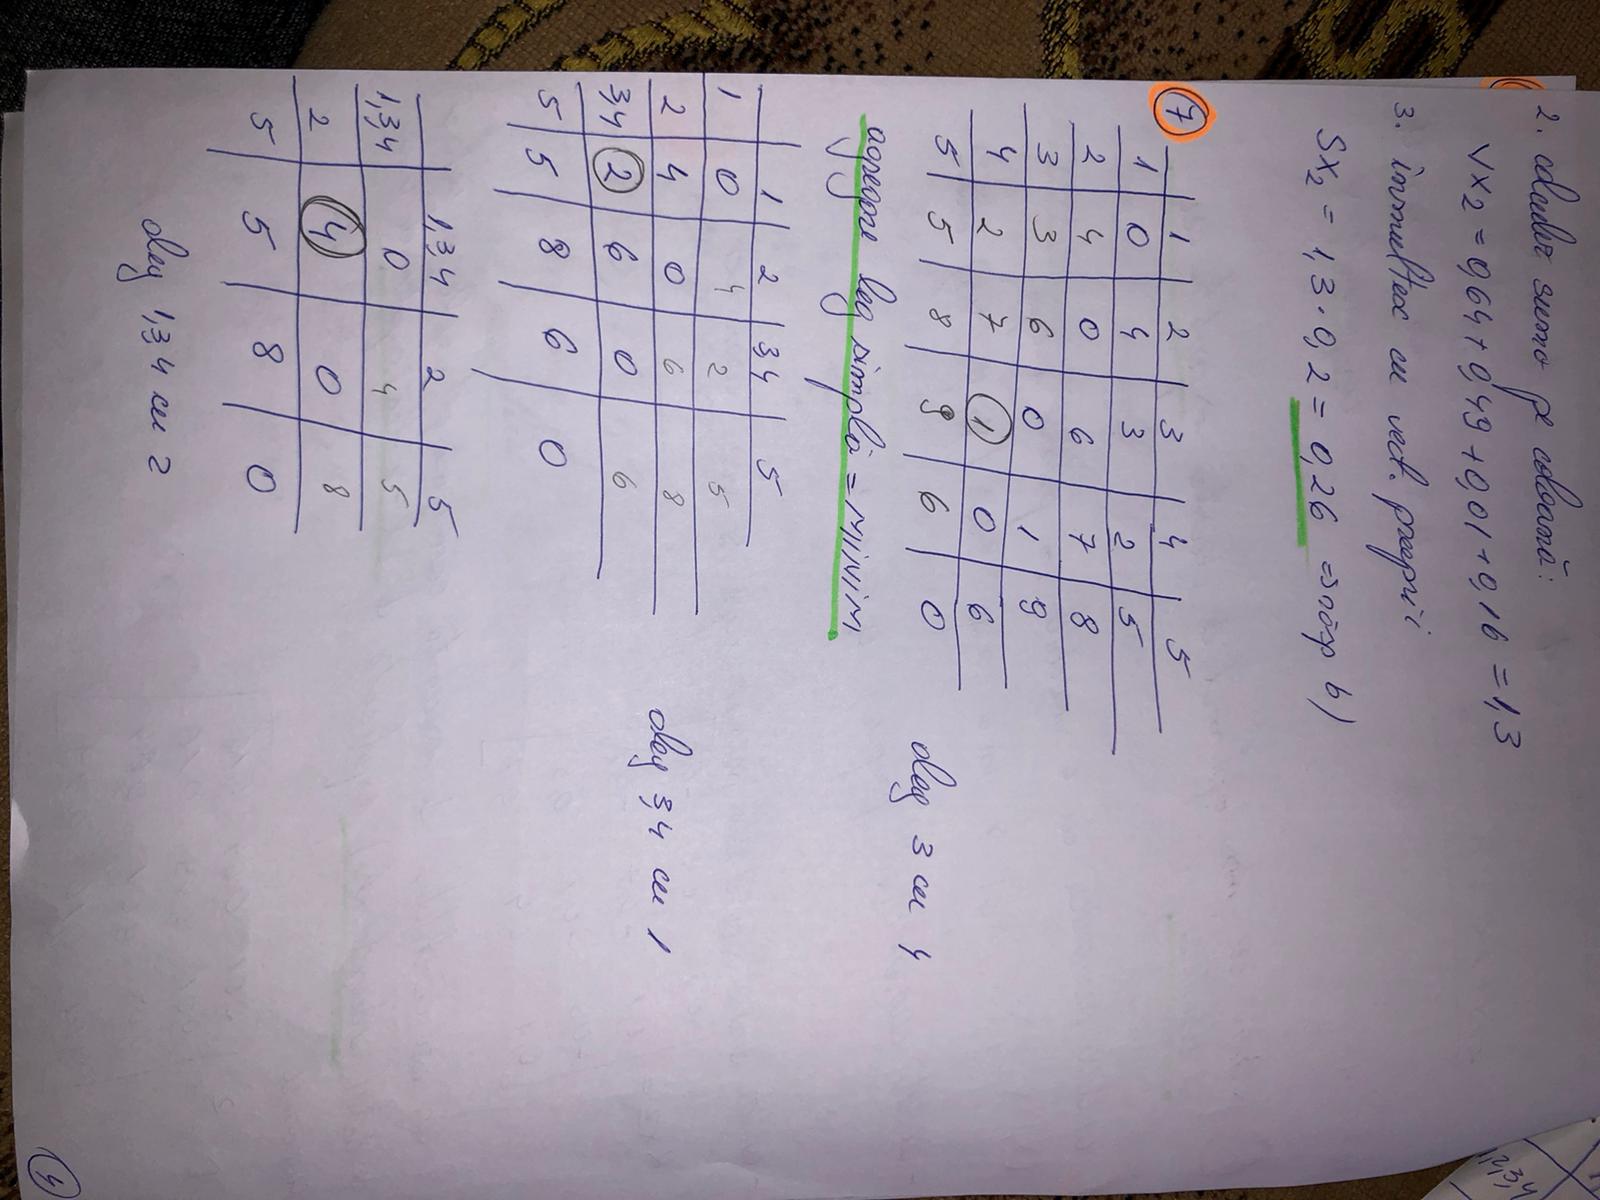 2. calculez suma pe coloană:
Vx2 = 0,64 + 0,49 + 0,01 + 0,16 = 1,3
3. înmultesc cu vect. proprii
Sx2 = 1,3 · 0,2 = 0,26 => răsp b)
7
1 2 3 4 5
1 0 4 3 2 5
2 4 0 6 7 8
3 3 6 0 1 9
4 2 7 1 0 6
5 5 8 9 6 0
agregare leg simplă = MINIM
aleg 3 cu 4
1 2 3,4 5
1 0 4 2 5
2 4 0 6 8
3,4 2 6 0 6
5 5 8 6 0
aleg 3,4 cu 1
1,3,4 2 5
1,3,4 0 4 5
2 4 0 8
5 5 8 0
aleg 1,3,4 cu 2
1,2,3,4
4